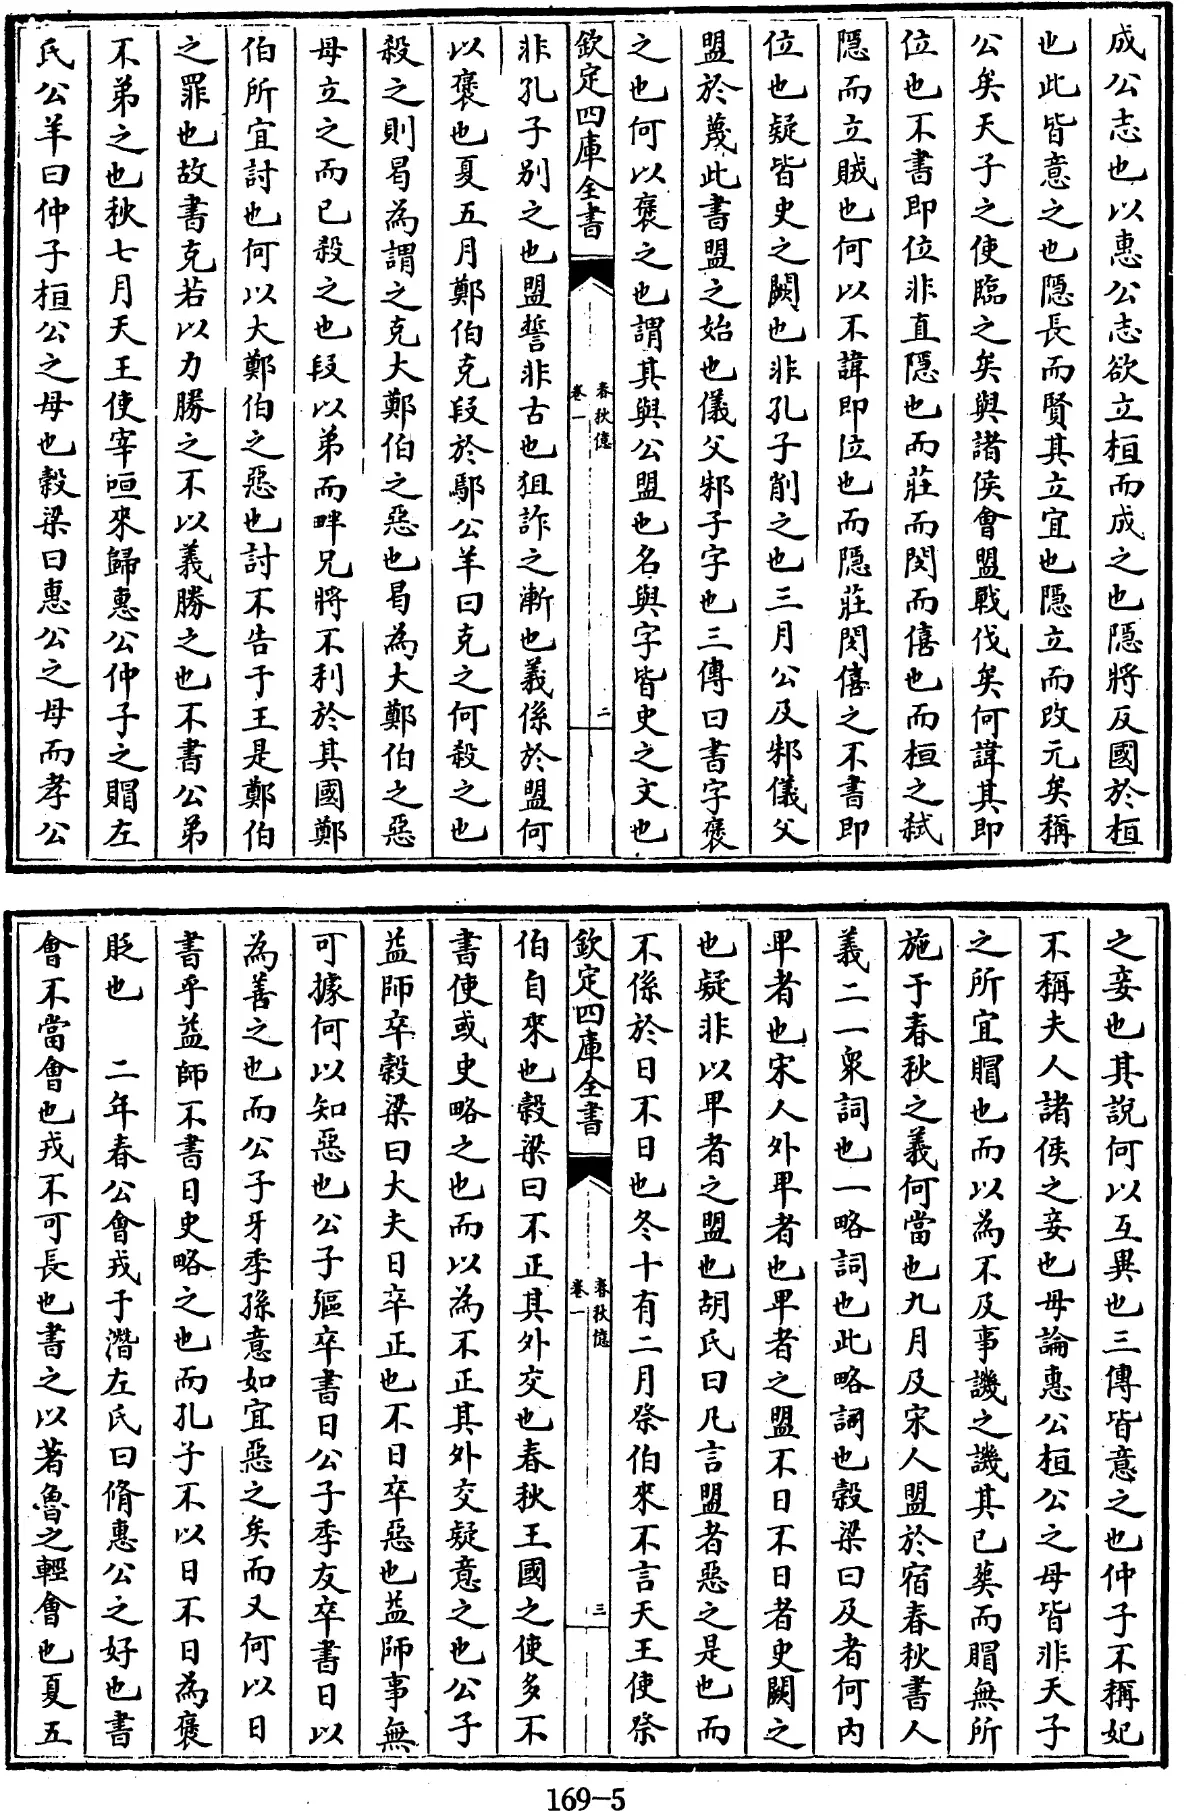 成公志也以惠公志欲立桓而成之也隱將反國於桓
也此皆意之也隱長而賢其立宜也隱立而改元矣稱
公矣天子之使臨之矣與諸侯會盟戰伐矣何諱其即
位也不書即位非直隱也而莊而閔而僖也而桓之弒
隱而立賊也何以不諱即位也而隱莊閔僖之不書即
位也疑皆史之闕也非孔子削之也三月公及邾儀父
盟於蔑此書盟之始也儀父邾子字也三傳曰書字褒
之也何以褒之也謂其與公盟也名與字皆史之文也
欽定四庫全書
春秋億
卷一
二
非孔子別之也盟誓非古也狙詐之漸也義係於盟何
以褒也夏五月鄭伯克段於鄢公羊曰克之何殺之也
殺之則曷為謂之克大鄭伯之惡也曷為大鄭伯之惡
母立之而已殺之也段以弟而畔兄將不利於其國鄭
伯所宜討也何以大鄭伯之惡也討不告于王是鄭伯
之罪也故書克若以力勝之不以義勝之也不書公弟
不弟之也秋七月天王使宰咺來歸惠公仲子之賵左
氏公羊曰仲子桓公之母也穀梁曰惠公之母而孝公
之妾也其說何以互異也三傳皆意之也仲子不稱妃
不稱夫人諸侯之妾也毋論惠公桓公之母皆非天子
之所宜賵也而以為不及事譏之譏其已葬而賵無所
施于春秋之義何當也九月及宋人盟於宿春秋書人
義二一衆詞也一略詞也此略詞也穀梁曰及者何內
卑者也宋人外卑者也卑者之盟不日不日者史闕之
也疑非以卑者之盟也胡氏曰凡言盟者惡之是也而
不係於日不日也冬十有二月祭伯來不言天王使祭
欽定四庫全書
春秋億
卷一
三
伯自來也穀梁曰不正其外交也春秋王國之使多不
書使或史略之也而以為不正其外交疑意之也公子
益師卒穀梁曰大夫日卒正也不日卒惡也益師事無
可據何以知惡也公子彄卒書日公子季友卒書日以
為善之也而公子牙季孫意如宜惡之矣而又何以日
書乎益師不書日史略之也而孔子不以日不日為褒
貶也　二年春公會戎于潛左氏曰脩惠公之好也書
會不當會也戎不可長也書之以著魯之輕會也夏五
169-5